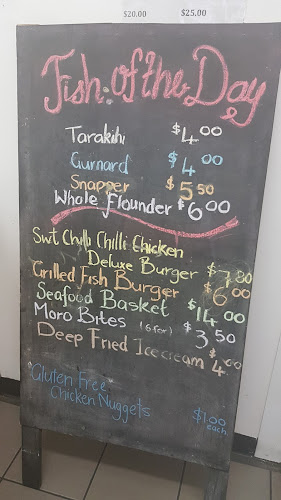 $20.00 $25.00
Fish: of the Day
Tarakihi $4.00
Gurnard $4.00
Snapper $5.50
Whole Flounder $6.00
Swt Chilli Chilli Chicken
Deluxe Burger $7.80
Grilled Fish Burger $6.00
Seafood Basket $14.00
Moro Bites (6 for) $3.50
Deep Fried Ice cream $4.00
"Gluten Free"
Chicken Nuggets $1.00
each